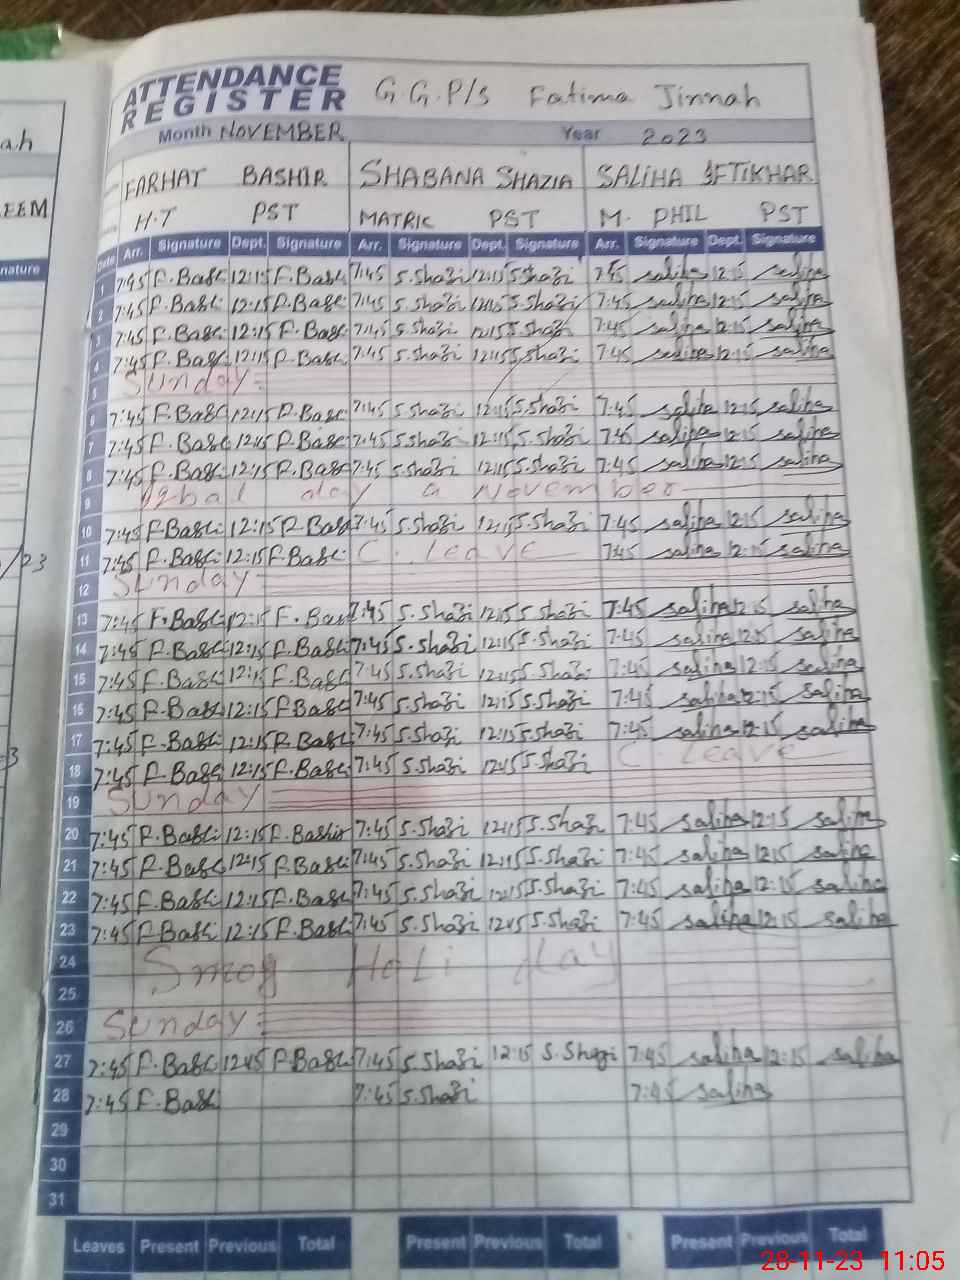 ATTENDANCE
REGISTER
G.G.P/s Fatima Jinnah
Month NOVEMBER Year 2023
FARHAT BASHIR SHABANA SHAZIA SALIHA IFTIKHAR
H.T PST MATRIC PST M. PHIL PST
Date Arr. Signature Dept. Signature Arr. Signature Dept. Signature Arr. Signature Dept. Signature
1 7:45 F.Bash 12:15 F.Bash 7:45 S.Shazi 12:15 S.Shazi 7:45 saliha 12:15 saliha
2 7:45 F.Bash 12:15 F.Bash 7:45 S.Shazi 12:15 S.Shazi 7:45 saliha 12:15 saliha
3 7:45 F.Bash 12:15 F.Bash 7:45 S.Shazi 12:15 S.Shazi 7:45 saliha 12:15 saliha
4 7:45 F.Bash 12:15 F.Bash 7:45 S.Shazi 12:15 S.Shazi 7:45 saliha 12:15 saliha
5 Sunday
6 7:45 F.Bash 12:15 F.Bash 7:45 S.Shazi 12:15 S.Shazi 7:45 saliha 12:15 saliha
7 7:45 F.Bash 12:15 F.Bash 7:45 S.Shazi 12:15 S.Shazi 7:45 saliha 12:15 saliha
8 7:45 F.Bash 12:15 F.Bash 7:45 S.Shazi 12:15 S.Shazi 7:45 saliha 12:15 saliha
9 Iqbal day 9 November
10 7:45 F.Bash 12:15 F.Bash 7:45 S.Shazi 12:15 S.Shazi 7:45 saliha 12:15 saliha
11 7:45 F.Bash 12:15 F.Bash C. Leave 7:45 saliha 12:15 saliha
12 Sunday
13 7:45 F.Bash 12:15 F.Bash 7:45 S.Shazi 12:15 S.Shazi 7:45 saliha 12:15 saliha
14 7:45 F.Bash 12:15 F.Bash 7:45 S.Shazi 12:15 S.Shazi 7:45 saliha 12:15 saliha
15 7:45 F.Bash 12:15 F.Bash 7:45 S.Shazi 12:15 S.Shazi 7:45 saliha 12:15 saliha
16 7:45 F.Bash 12:15 F.Bash 7:45 S.Shazi 12:15 S.Shazi 7:45 saliha 12:15 saliha
17 7:45 F.Bash 12:15 F.Bash 7:45 S.Shazi 12:15 S.Shazi 7:45 saliha 12:15 saliha
18 7:45 F.Bash 12:15 F.Bash 7:45 S.Shazi 12:15 S.Shazi C. Leave
19 Sunday
20 7:45 F.Bash 12:15 F.Bashir 7:45 S.Shazi 12:15 S.Shazi 7:45 saliha 12:15 saliha
21 7:45 F.Bash 12:15 F.Bash 7:45 S.Shazi 12:15 S.Shazi 7:45 saliha 12:15 saliha
22 7:45 F.Bash 12:15 F.Bash 7:45 S.Shazi 12:15 S.Shazi 7:45 saliha 12:15 saliha
23 7:45 F.Bash 12:15 F.Bash 7:45 S.Shazi 12:15 S.Shazi 7:45 saliha 12:15 saliha
24 Smog HoLi day
25
26 Sunday
27 7:45 F.Bash 12:15 F.Bash 7:45 S.Shazi 12:15 S.Shazi 7:45 saliha 12:15 saliha
28 7:45 F.Bash 7:45 S.Shazi 7:45 saliha
29
30
31
Leaves Present Previous Total Present Previous Total Present Previous Total
28-11-23 11:05